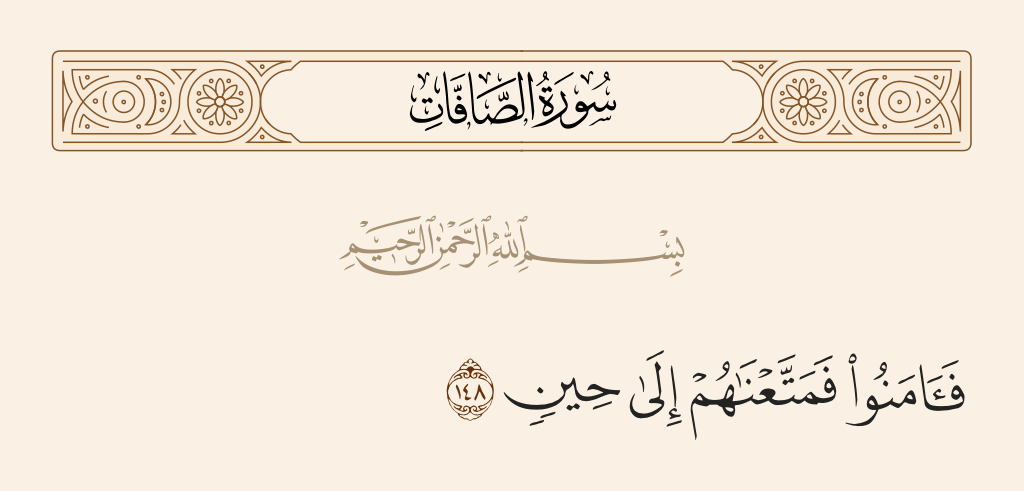 سُورَةُ الصَّافَّاتِ
بِسْمِ ٱللَّهِ ٱلرَّحْمَٰنِ ٱلرَّحِيمِ
فَـَٔامَنُوا۟ فَمَتَّعْنَٰهُمْ إِلَىٰ حِينٍ ١٤٨